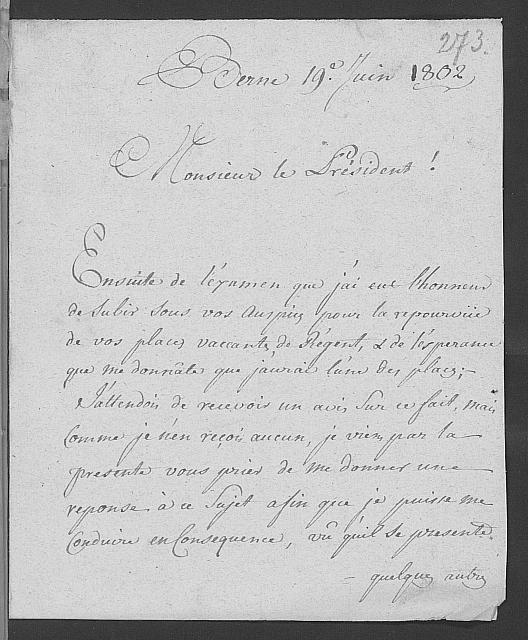 273.
Berne 19e Juin 1802
Monsieur le Président !
Ensuite de l'éxamen que j'ai eut l'honneur
de Subir Sous vos Auspiçs pour la repourvüe
de vos places vaccants de Régent, & de l'ésperance
que me donnâte que j'aurai l'une des places;-
J'attendois de recevoir un avis Sur ce fait, mais
Comme je n'en reçois aucun, je viens par la
presente vous prier de me donner une
reponse à ce Sujet afin que je puisse me
Conduire en Consequence, vû qu'il se presente
- quelques autres